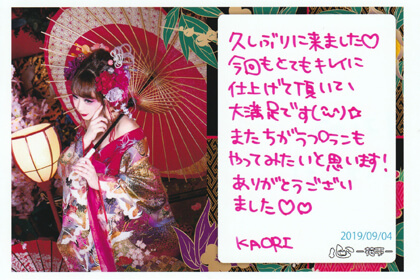 久しぶりに来ました♡
今回もとてもキレイに
仕上げて頂いて、
大満足です(ᵔᵕᵔ)☆
またちがうプランも
やってみたいと思います!
ありがとうござい
ました♡♡
KAORI
2019/09/04
心 一花雫一